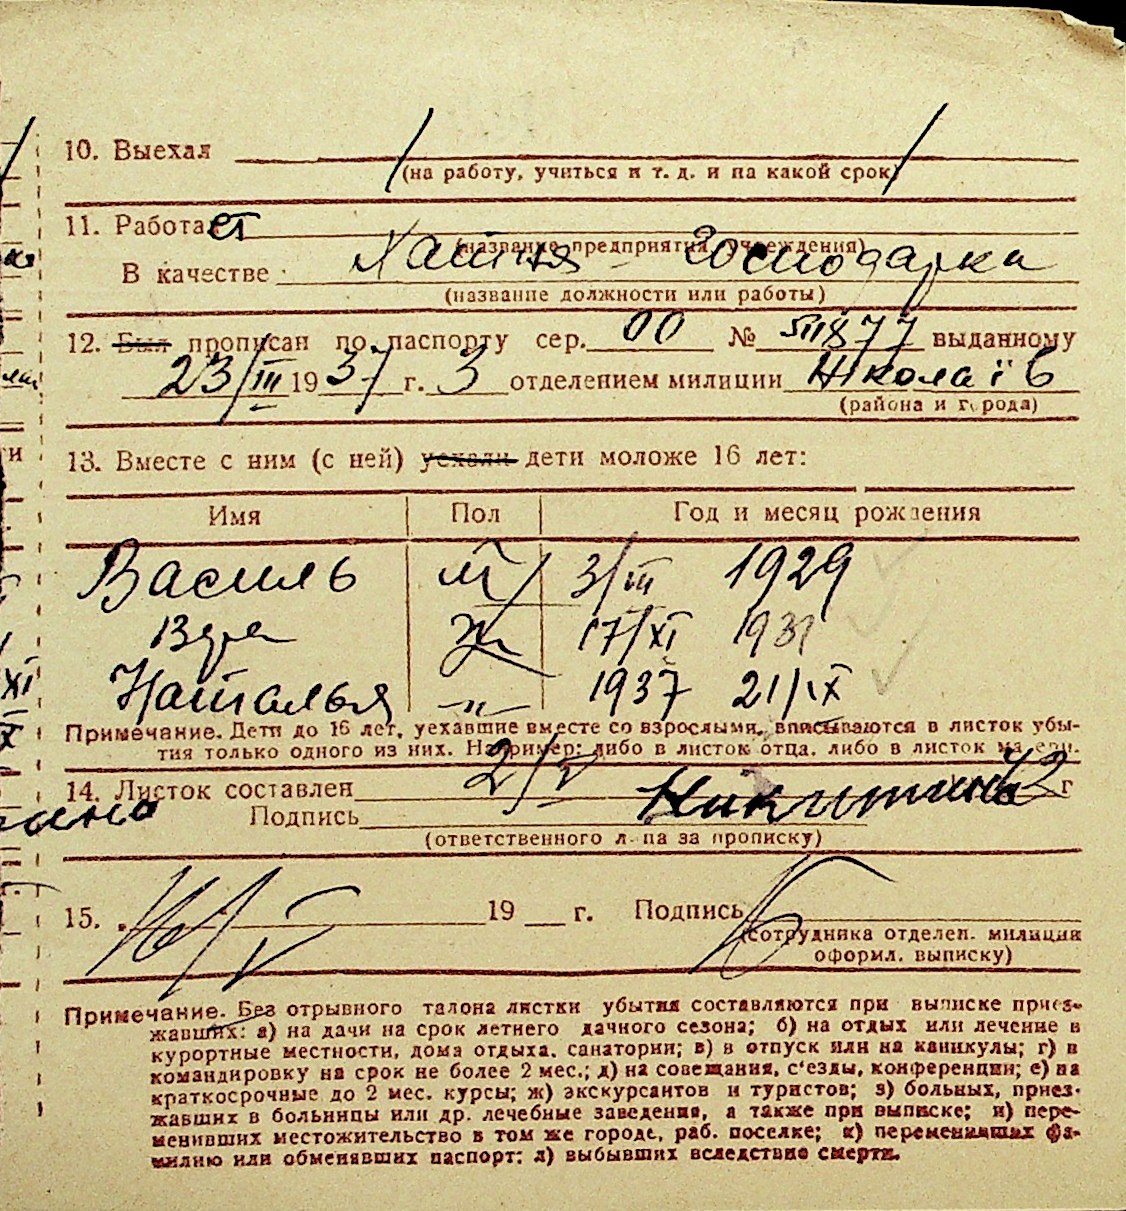 10. Выехал
(на работу, учиться и т. д. и на какой срок)
11. Работает
(название предприятия, учреждения)
В качестве Хатня господарка
(название должности или работы)
12. Был прописан по паспорту сер. 00 № выданному
23/III 1937 г. 3 отделением милиции Миколаїв
(района и города)
13. Вместе с ним (с ней) уехали дети моложе 16 лет:
Имя Пол Год и месяц рождения
Василь М 3/III 1929
Вера Ж 17/XI 1931
Наталья „ 1937 21/IX
Примечание. Дети до 16 лет, уехавшие вместе со взрослыми, вписываются в листок убы-
тия только одного из них. Например: либо в листок отца, либо в листок матери.
14. Листок составлен 2/V 42 г
Подпись Никитина
(ответственного лица за прописку)
15. 19 г. Подпись
(сотрудника отделен. милиции
оформил. выписку)
Примечание. Без отрывного талона листки убытия составляются при выписке приез-
жавших: а) на дачи на срок летнего дачного сезона; б) на отдых или лечение в
курортные местности, дома отдыха, санатории; в) в отпуск или на каникулы; г) в
командировку на срок не более 2 мес.; д) на совещания, с'езды, конференции; е) на
краткосрочные до 2 мес. курсы; ж) экскурсантов и туристов; з) больных, приез-
жавших в больницы или др. лечебные заведения, а также при выписке; и) пере-
менивших местожительство в том же городе, раб. поселке; к) переменивших фа-
милию или обменявших паспорт; л) выбывших вследствие смерти.